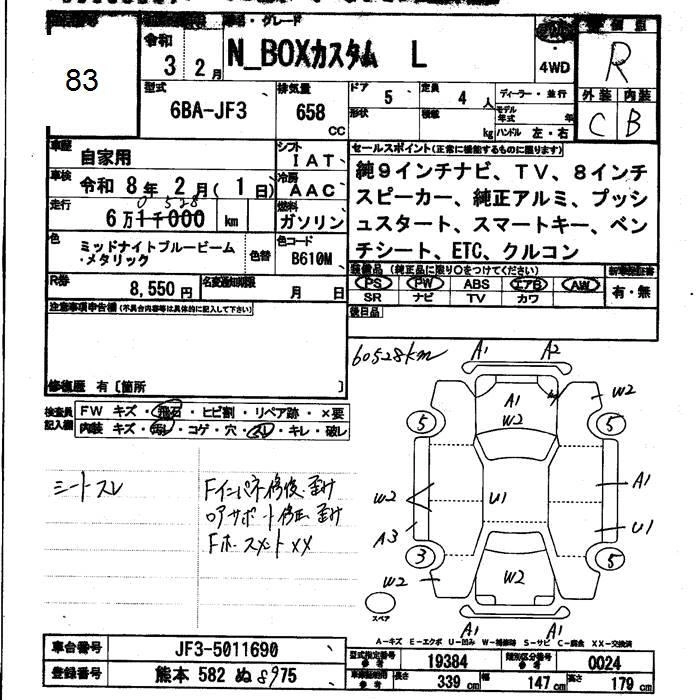 83
令和
3 2月
N_BOXカスタム L
4WD
R
型式
6BA-JF3
排気量
658
CC
ドア
5
定員
4 人
形状
積載
kg
ディーラー・並行
モデル年式 年
ハンドル 左・右
外装 内装
C B
車歴
自家用
シフト
IAT
車検
令和 8年 2月(1日)
冷房
AAC
走行
6万1千000 km
0 528
燃料
ガソリン
色
ミッドナイトブルービーム
・メタリック
色替
色コード
B610M
R券
8,550円
名変通知期限
月 日
セールスポイント(正常に機能するものに限ります)
純9インチナビ、TV、8インチ
スピーカー、純正アルミ、プッシ
ュスタート、スマートキー、ベン
チシート、ETC、クルコン
装備品(純正品に限り○をつけてください)
PS PW ABS エアB AW
SR ナビ TV カワ
有・無
後日品
注意事項申告欄(不具合内容等は具体的に記入して下さい)
修復歴 有〔箇所 〕
検査員
記入欄
FW キズ・飛石・ヒビ割・リペア跡・×要
内装 キズ・汚レ・コゲ・穴・スレ・キレ・破レ
シートスレ
Fインパネ修復歪け
ロアサポート修正歪け
Fホースメント××
60528km
A1 A2
A1
W2
W2
5 5
W2
U1
A1
A3
U1
3 5
W2
W2
A1 A1
スペア
A-キズ E-エクボ U-凹み W-補修跡 S-サビ C-腐食 XX-交換済
車台番号
JF3-5011690
登録番号
熊本 582 ぬ 8975
型式指定番号
参考
19384
類別区分番号
参考
0024
参考
長さ
339 cm
幅
147 cm
高さ
179 cm